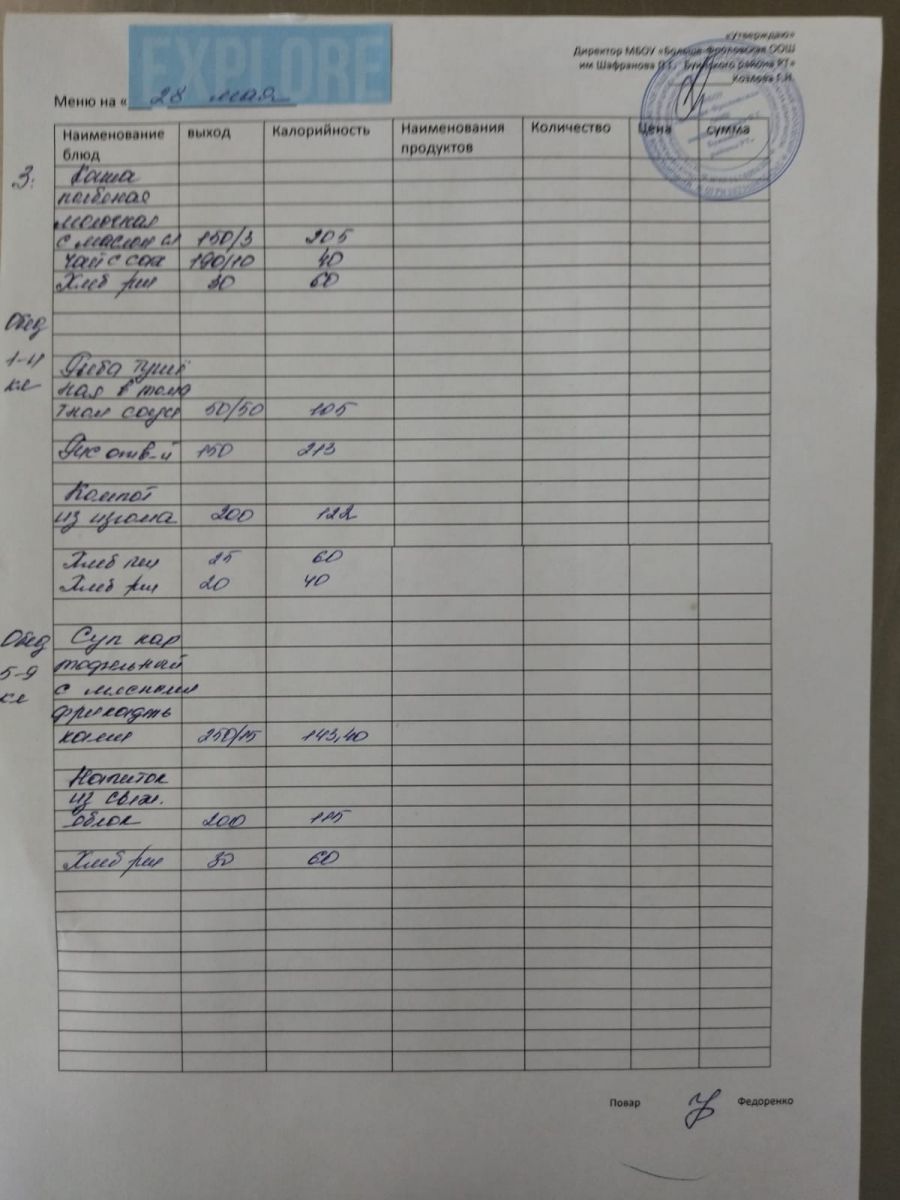 EXPLORE
«Утверждаю»
Директор МБОУ «Больше-Фроловская ООШ
им Шафранова П.Г. Буинского района РТ»
Козлова Г.И.
Меню на « 28 мая
Наименование блюд выход Калорийность Наименования продуктов Количество Цена сумма
З:
Каша
молочная
с маслом сл 150/3 205
Чай с сах 190/10 40
Хлеб рж 30 60
Обед
1-4
кл
Рыба туше
ная в тома
тном соусе 50/50 105
Рис отв-й 150 213
Компот
из изюма 200 122
Хлеб пш 25 60
Хлеб рж 20 40
Обед
5-9
кл
Суп кар
тофельный
с мясными
фрикадель
ками 250/15 143,40
Напиток
из свеж.
яблок 200 115
Хлеб рж 30 60
Повар Федоренко